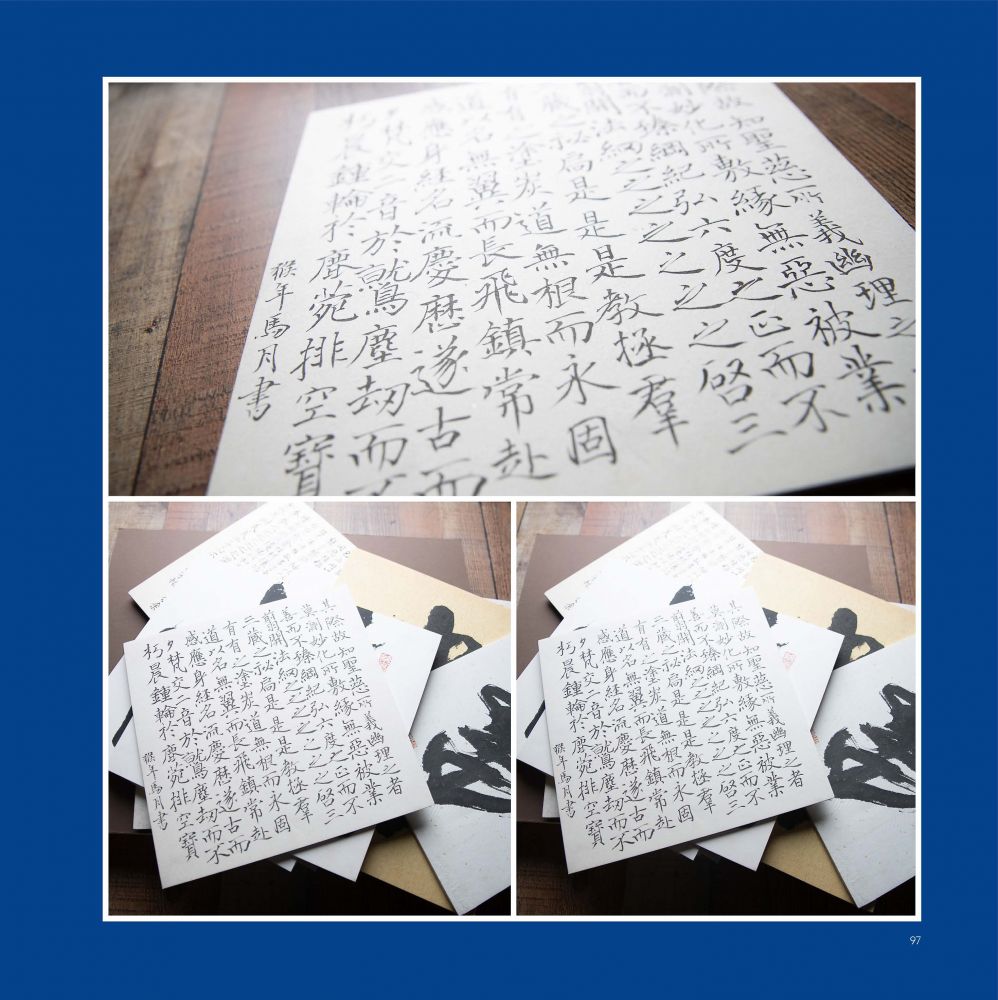 際故知聖慈所義幽理之
測妙化所敷緣無惡被業
而不臻綱紀弘六度之正而不
翦開法網之之之之啓三
藏之秘扃是是教拯羣
有之塗炭道無根而永固
道以名無翼而長飛鎮常赴
感應身經名流慶曆遂古而
夕梵交二音於鷲塵劫而不
朽晨鍾輪於鹿苑排空寶
猴年馬月書
其際故知聖慈所義幽理之者
莫測妙化所敷緣無惡被業
善而不臻綱紀弘六度之正而不
翦開法網之之之之啓三
二藏之秘扃是是教拯羣
有有之塗炭道無根而永固
道以名無翼而長飛鎮常赴
感應身經名流慶曆遂古而
夕梵交二音於鷲塵劫而不
朽晨鍾輪於鹿苑排空寶
猴年馬月書
其際故知聖慈所義幽理之者
莫測妙化所敷緣無惡被業
善而不臻綱紀弘六度之正而不
翦開法網之之之之啓三
二藏之秘扃是是教拯羣
有有之塗炭道無根而永固
道以名無翼而長飛鎮常赴
感應身經名流慶曆遂古而
夕梵交二音於鷲塵劫而不
朽晨鍾輪於鹿苑排空寶
猴年馬月書
97